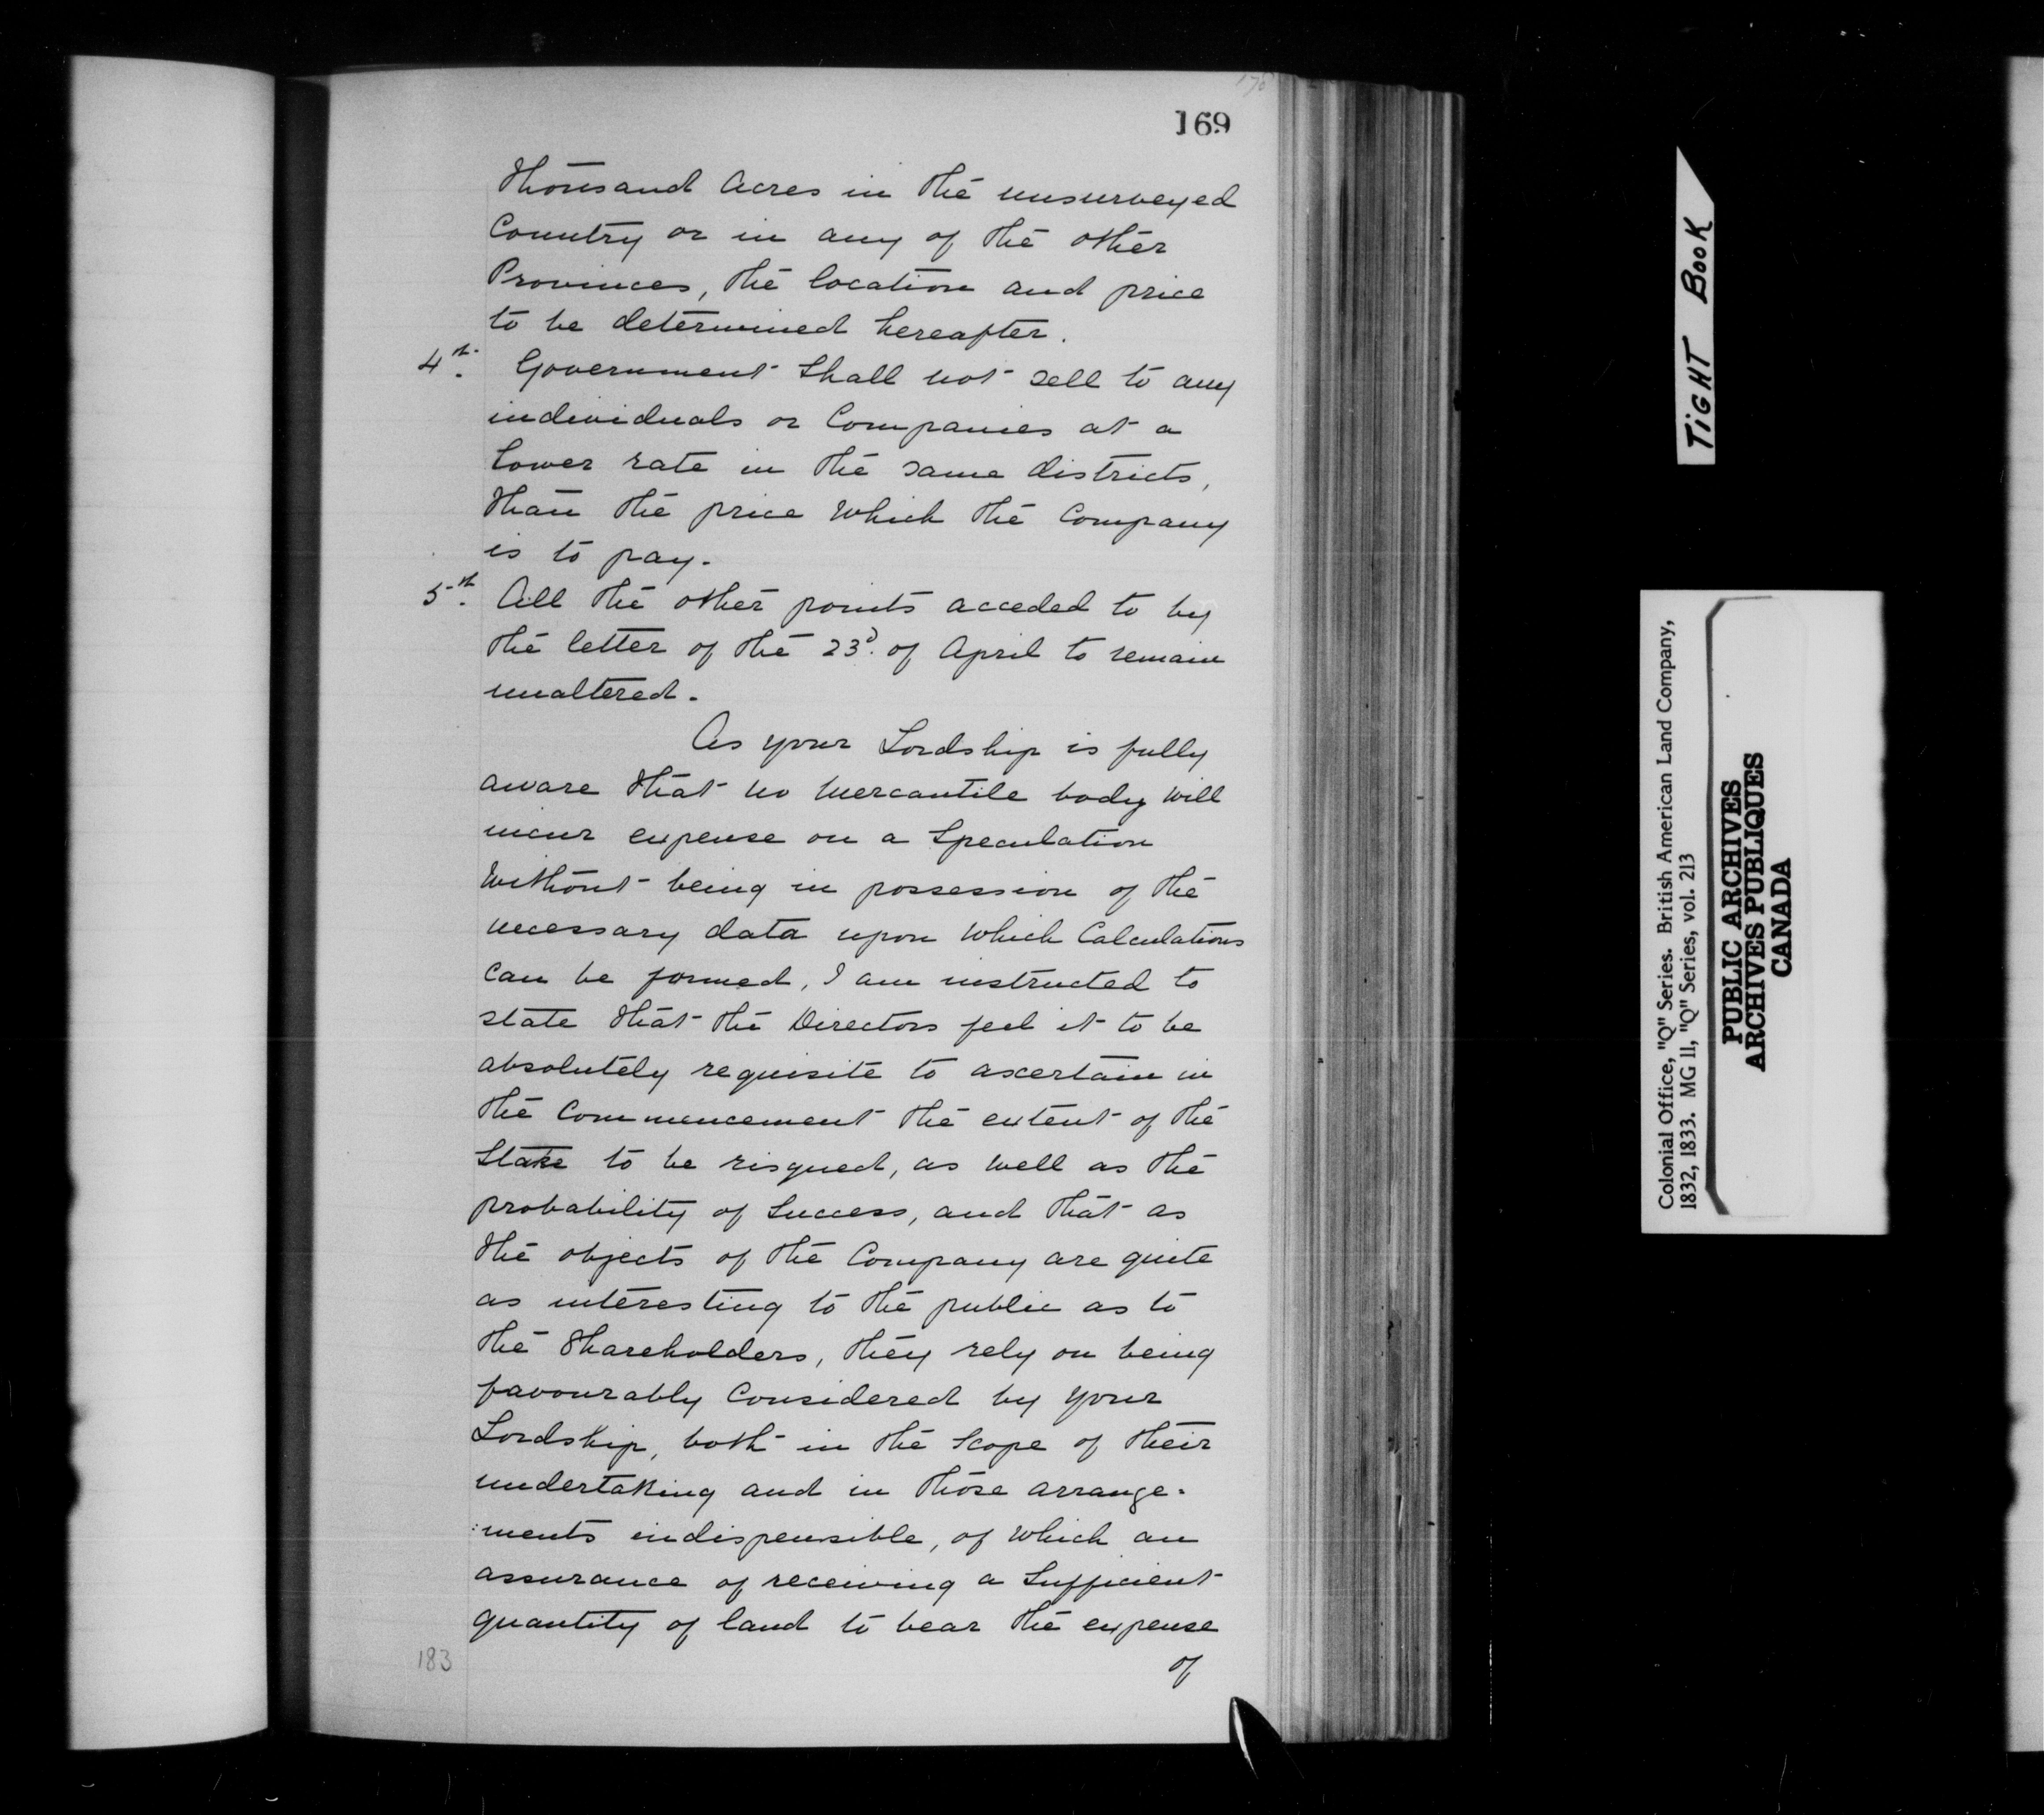 169
thousand Acres in the unsurveyed
Country or in any of the other
Provinces, the location and price
to be determined hereafter.
4th. Government Shall not sell to any
individuals or Companies at a
lower rate in the same districts,
than the price which the Company
is to pay.
5th. All the other points acceded to by
the letter of the 23d. of April to remain
unaltered.
As your Lordship is fully
aware that no Mercantile body will
incur expense on a Speculation
without being in possession of the
necessary data upon which Calculations
can be formed, I am instructed to
state that the Directors feel it to be
absolutely requisite to ascertain in
the Commencement the extent of the
Stake to be risqued, as well as the
probability of Success, and that as
the objects of the Company are quite
as interesting to the public as to
the Shareholders, they rely on being
favourably Considered by your
Lordship, both in the Scope of their
undertaking and in those arrange-
:ments indispensible, of which an
assurance of receiving a Sufficient
quantity of land to bear the expense
of
183
TIGHT BOOK
Colonial Office, "Q" Series. British American Land Company,
1832, 1833. MG 11, "Q" Series, vol. 213
PUBLIC ARCHIVES
ARCHIVES PUBLIQUES
CANADA